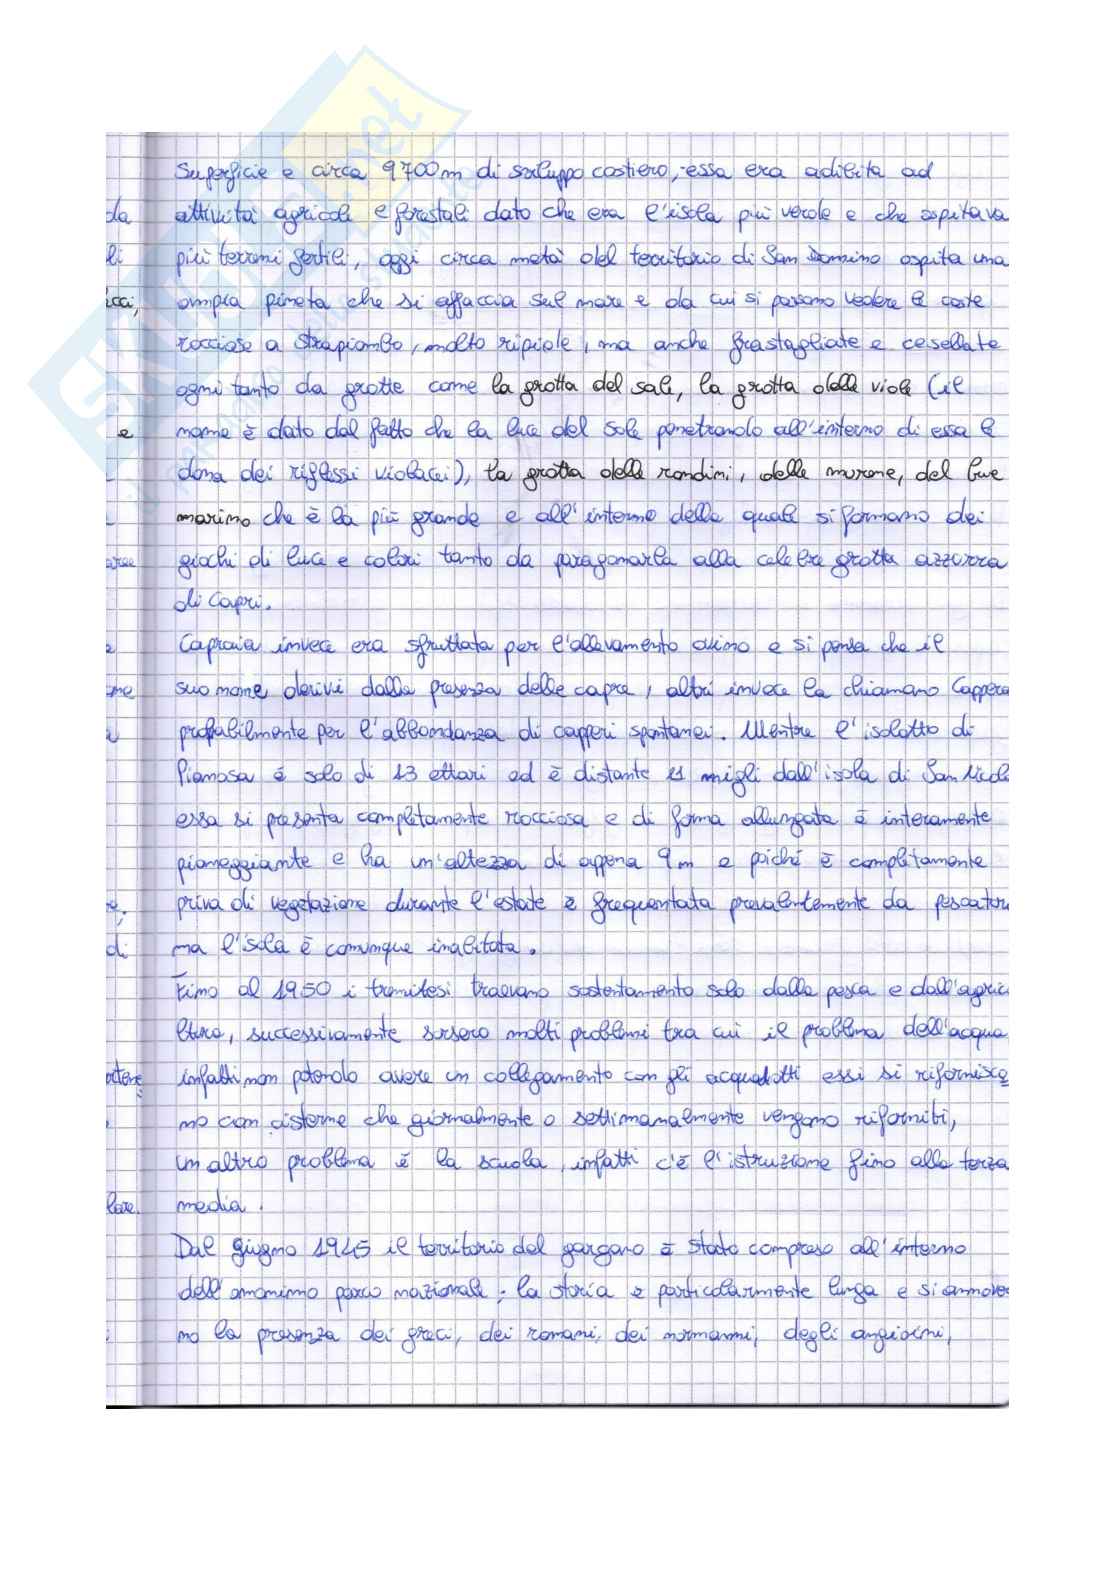 superficie e circa 9700 m di sviluppo costiero, essa era adibita ad
attività agricoli e forestali dato che era l'isola più verde e che ospitava
più terreni fertili, oggi circa metà del territorio di San Domino ospita una
ampia pineta che si affaccia sul mare e da cui si possono vedere le coste
rocciose a strapiombo, molto ripide, ma anche frastagliate e cesellate
ogni tanto da grotte come la grotta del sale, la grotta delle viole (il
nome è dato dal fatto che la luce del sole penetrando all'interno di essa le
dona dei riflessi violacei), la grotta delle rondini, delle murene, del bue
marino che è la più grande e all'interno della quale si formano dei
giochi di luce e colori tanto da paragonarla alla celebre grotta azzurra
di Capri.
Capraia invece era sfruttata per l'allevamento ovino e si pensa che il
suo nome derivi dalla presenza delle capre, altri invece la chiamano Cappera
probabilmente per l'abbondanza di capperi spontanei. Mentre l'isolotto di
Pianosa è solo di 13 ettari ed è distante 11 migli dall'isola di San Nicola
essa si presenta completamente rocciosa e di forma allungata è interamente
pianeggiante e ha un'altezza di appena 9 m e poiché è completamente
priva di vegetazione durante l'estate è frequentata prevalentemente da pescatori
ma l'isola è comunque inabitata.
Fino al 1950 i tremitesi traevano sostentamento solo dalla pesca e dall'agric
ltura, successivamente sorsero molti problemi tra cui il problema dell'acqua
infatti non potendo avere un collegamento con gli acquedotti essi si riforniscо
no con cisterne che giornalmente o settimanalmente vengono riforniti,
un altro problema è la scuola, infatti c'è l'istruzione fino alla terza
media.
Dal giugno 1945 il territorio del gargano è stato compreso all'interno
dell'omonimo parco nazionale; la storia è particolarmente lunga e si annovera
no la presenza dei greci, dei romani, dei normanni, degli angioini,